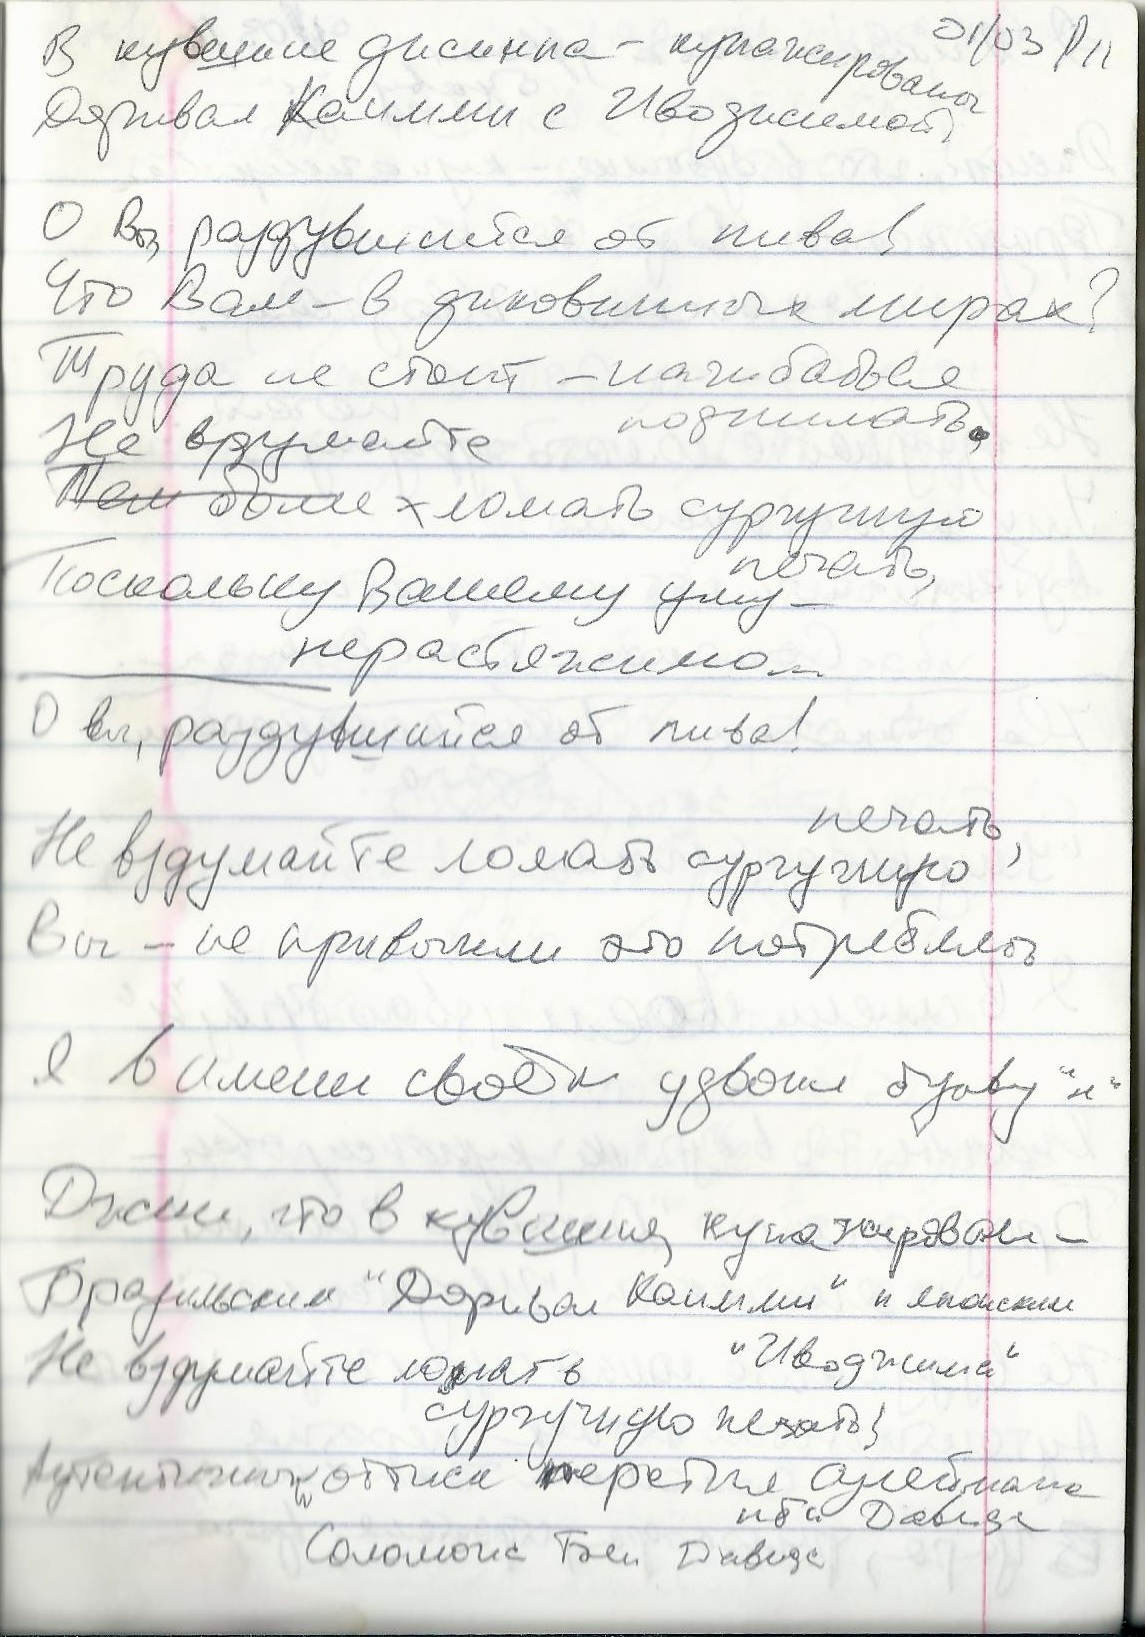 01/03 P11
В кувшине джинна – купажированы
Дориваль Каимми с Иводжимой,
О Вы, раздувшийся от пива!
Что Вам – в диковинных мирах?
Труда не стоит – нагибаться
поднимать,
Не вздумайте
Тем более ломать сургучную
печать,
Поскольку Вашему уму –
нерастяжимо
О вы, раздувшийся от пива!
печать,
Не вздумайте ломать сургучную
Вы – не привыкли это потреблять
Я в имени своём удвоил букву "н"
Джинн, что в кувшине, купажирован –
Бразильским "Доривал Каимми" и японским
"Иводжима"
Не вздумайте ломать
сургучную печать!
Аутентичный оттиск перстня Сулеймана
ибн Давида
Соломона Бен Давида